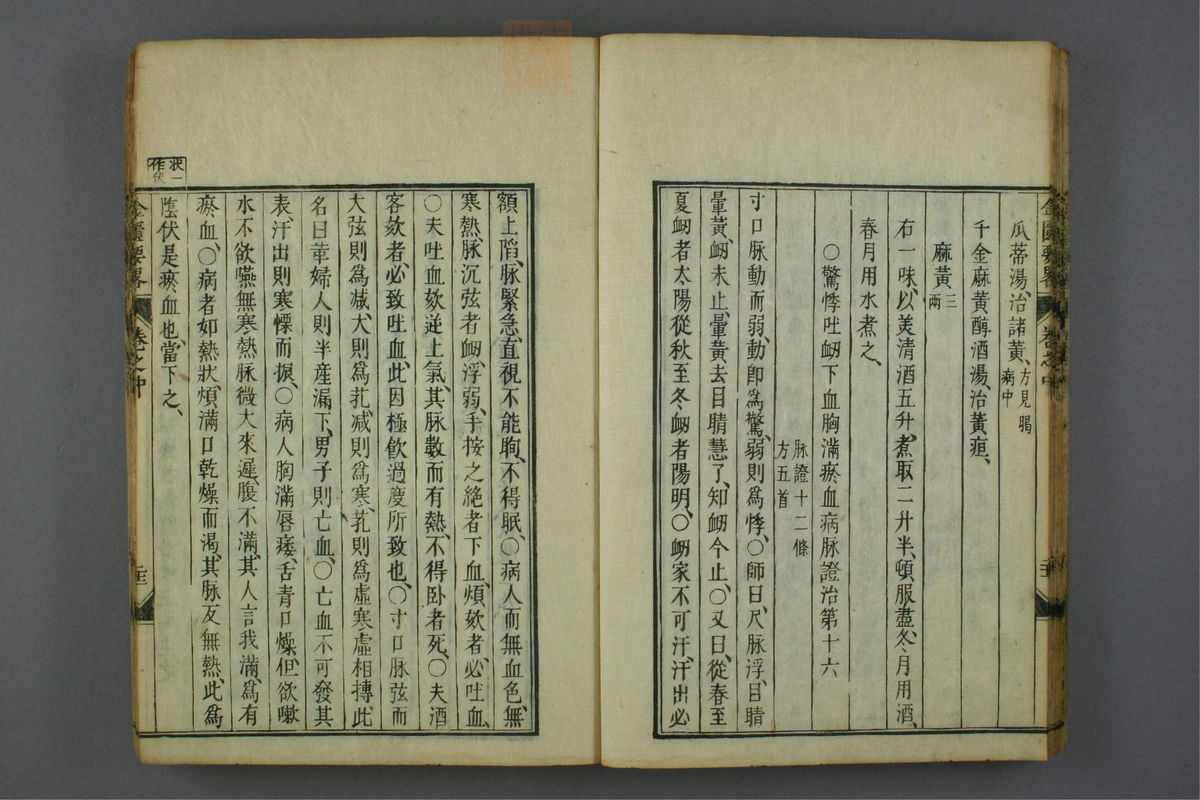 瓜蒂湯、治諸黃、方見暍病中
千金麻黃醇酒湯、治黃疸、
麻黃三兩
右一味、以美清酒五升、煮取二升半、頓服盡、冬月用酒、
春月用水煮之、
〇驚悸吐衂下血胸滿瘀血病脉證治第十六
脉證十二條
方五首
寸口脉動而弱、動卽爲驚、弱則爲悸、〇師曰、尺脉浮、目睛
暈黃、衂未止、暈黃去目睛慧了、知衂今止、〇又曰、從春至
夏衂者太陽、從秋至冬衂者陽明、〇衂家不可汗、汗出必
額上陷、脉緊急、直視不能眴、不得眠、〇病人而無血色、無
寒熱、脉沉弦者衂、浮弱、手按之絶者下血、煩欬者、必吐血、
〇夫吐血、欬逆上氣、其脉數而有熱、不得卧者死、〇夫酒
客欬者、必致吐血、此因極飮過度所致也、〇寸口脉弦而
大、弦則爲减、大則爲芤、减則爲寒、芤則爲虛、寒虛相摶、此
名曰革、婦人則半産漏下、男子則亡血、〇亡血不可發其
表、汗出則寒慄而振、〇病人胸滿、唇痿、舌青、口燥、但欲嗽
水、不欲嚥、無寒熱、脉微大來遲、腹不滿、其人言我滿、爲有
瘀血、〇病者如熱狀、煩滿口乾燥而渴、其脉反無熱、此爲
陰伏、是瘀血也、當下之、
狀一作伏
金匱要畧
卷之中